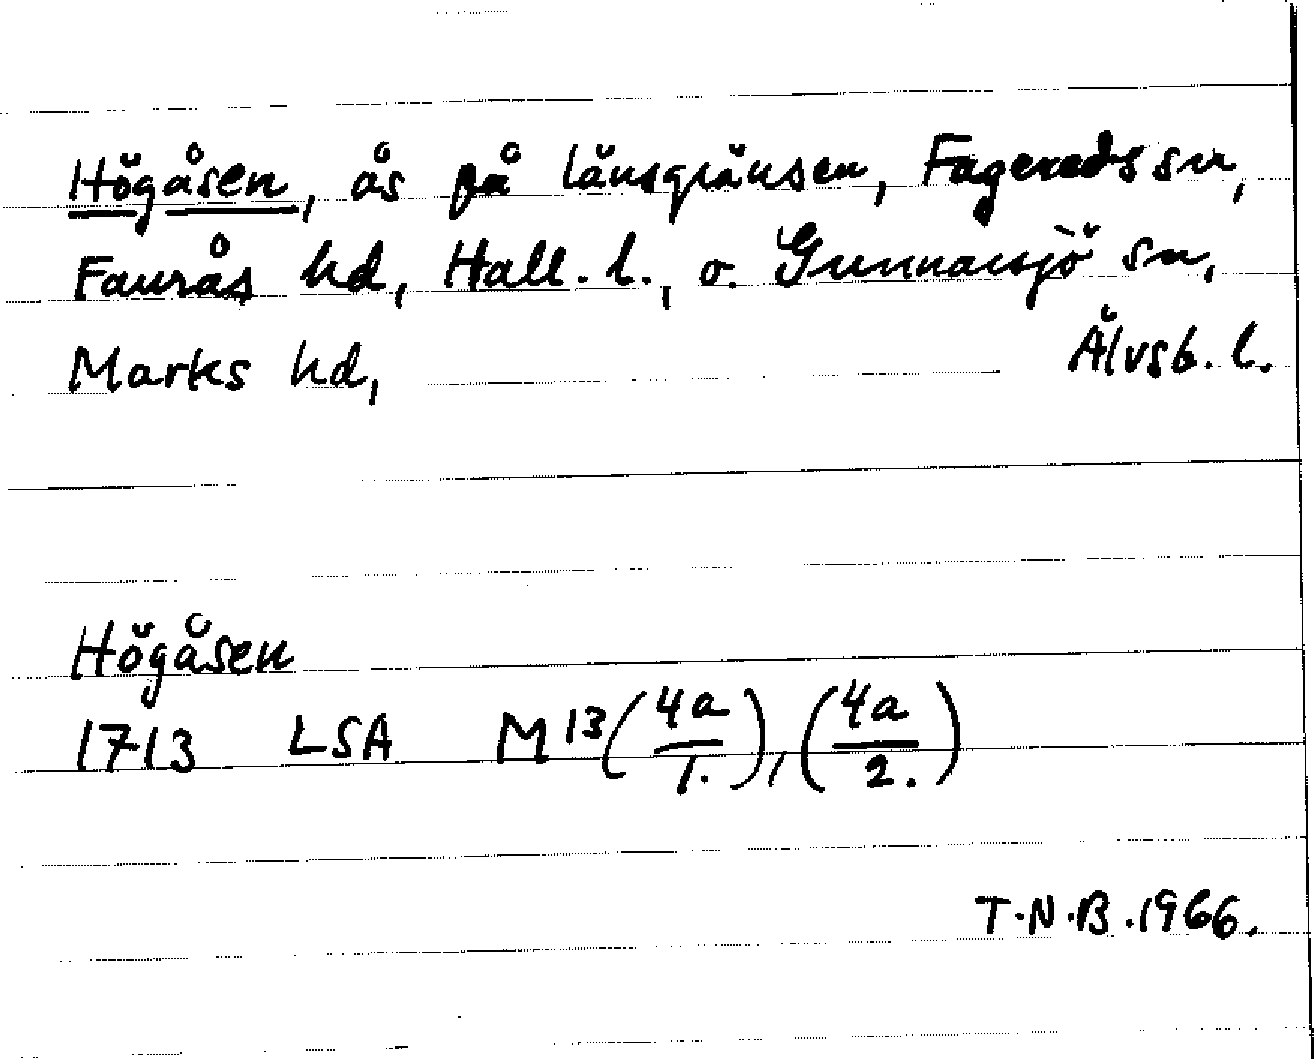 Högåsen, ås på länsgränsen, Fagereds sn,
Faurås hd, Hall. l., o. Gunnarsjö sn,
Marks hd, Älvsb. l.
Högåsen
1713 LSA M13(4a/1.), (4a/2.)
T.N.B. 1966.